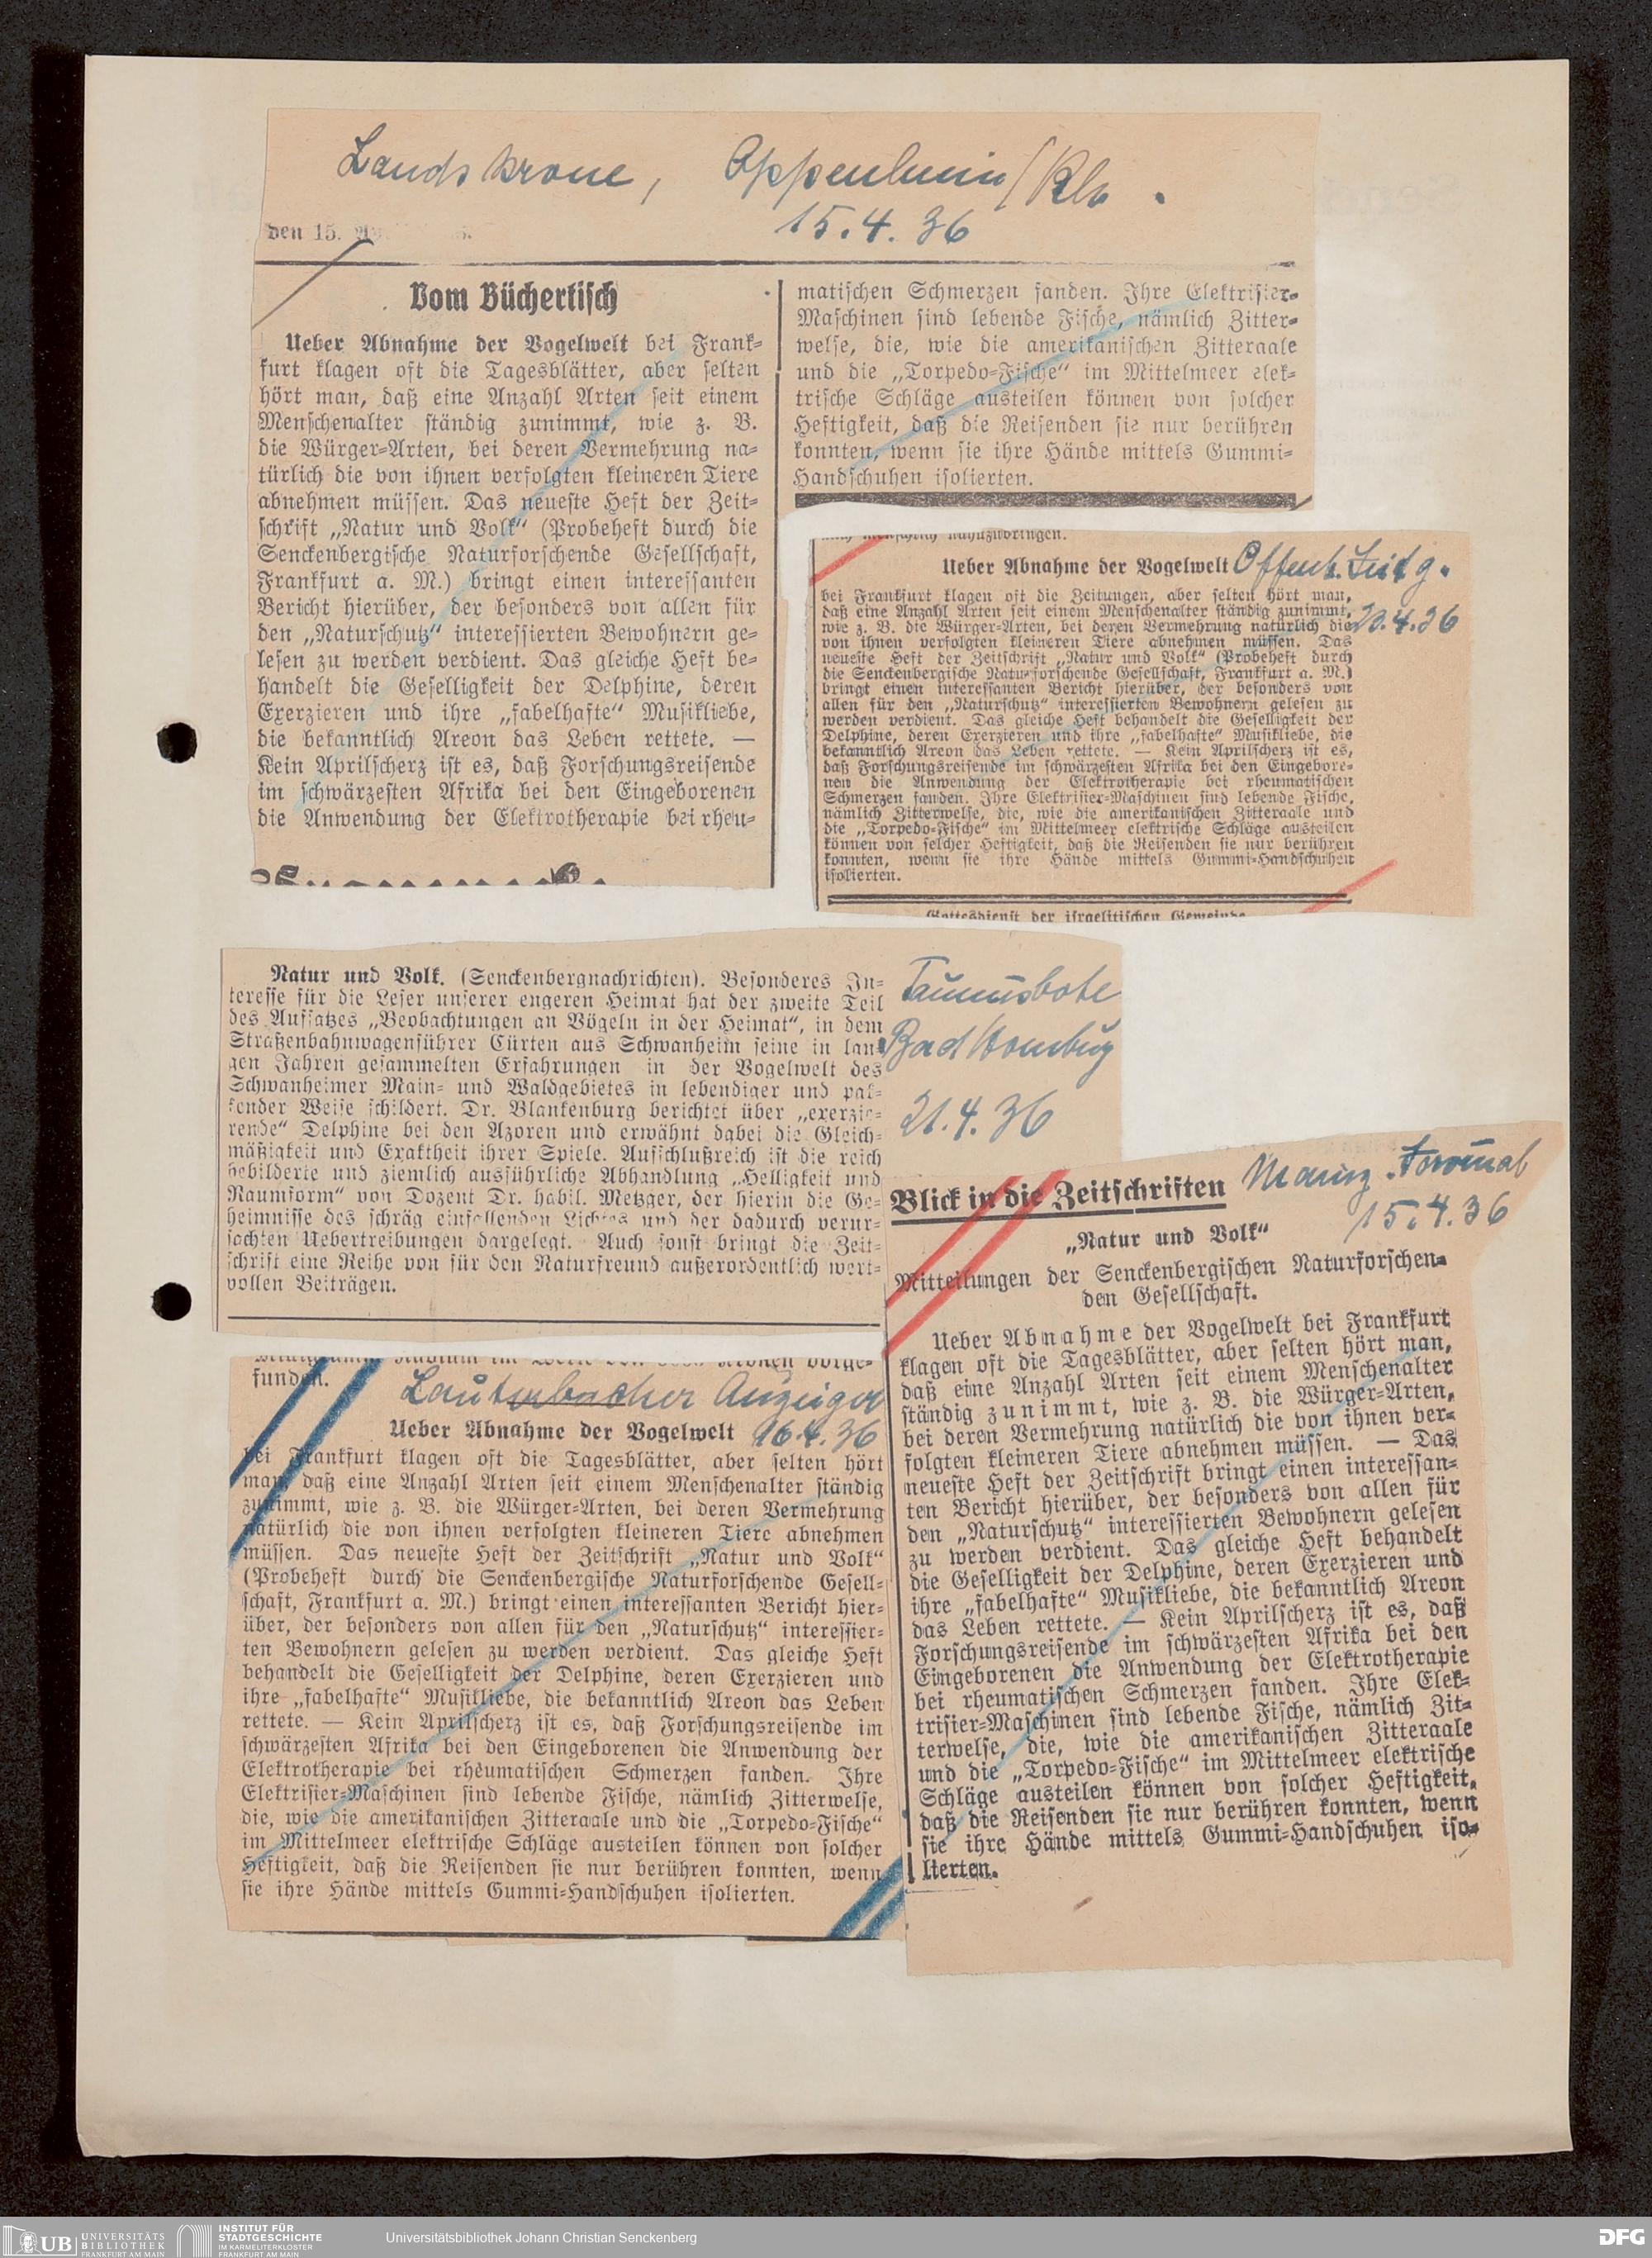 Landskrone, Oppenheim/Rh.
15.4.36
den 15.
Vom Büchertisch
Ueber Abnahme der Vogelwelt bei Frank-
furt klagen oft die Tagesblätter, aber selten
hört man, daß eine Anzahl Arten seit einem
Menschenalter ständig zunimmt, wie z. B.
die Würger-Arten, bei deren Vermehrung na-
türlich die von ihnen verfolgten kleineren Tiere
abnehmen müssen. Das neueste Heft der Zeit-
schrift „Natur und Volk“ (Probeheft durch die
Senckenbergische Naturforschende Gesellschaft,
Frankfurt a. M.) bringt einen interessanten
Bericht hierüber, der besonders von allen für
den „Naturschutz“ interessierten Bewohnern ge-
lesen zu werden verdient. Das gleiche Heft be-
handelt die Geselligkeit der Delphine, deren
Exerzieren und ihre „fabelhafte“ Musikliebe,
die bekanntlich Areon das Leben rettete. —
Kein Aprilscherz ist es, daß Forschungsreisende
im schwärzesten Afrika bei den Eingeborenen
die Anwendung der Elektrotherapie bei rheu-
matischen Schmerzen fanden. Ihre Elektrisier-
Maschinen sind lebende Fische, nämlich Zitter-
welse, die, wie die amerikanischen Zitteraale
und die „Torpedo-Fische“ im Mittelmeer elek-
trische Schläge austeilen können von solcher
Heftigkeit, daß die Reisenden sie nur berühren
konnten, wenn sie ihre Hände mittels Gummi-
Handschuhen isolierten.
Ueber Abnahme der Vogelwelt Offenb. Zeitg.
bei Frankfurt klagen oft die Zeitungen, aber selten hört man,
daß eine Anzahl Arten seit einem Menschenalter ständig zunimmt,
wie z. B. die Würger-Arten, bei deren Vermehrung natürlich die
.4.36
von ihnen verfolgten kleineren Tiere abnehmen müssen. Das
neueste Heft der Zeitschrift „Natur und Volk“ (Probeheft durch
die Senckenbergische Naturforschende Gesellschaft, Frankfurt a. M.)
bringt einen interessanten Bericht hierüber, der besonders von
allen für den „Naturschutz“ interessierten Bewohnern gelesen zu
werden verdient. Das gleiche Heft behandelt die Geselligkeit der
Delphine, deren Exerzieren und ihre „fabelhafte“ Musikliebe, die
bekanntlich Areon das Leben rettete. — Kein Aprilscherz ist es,
daß Forschungsreisende im schwärzesten Afrika bei den Eingebore-
nen die Anwendung der Elektrotherapie bei rheumatischen
Schmerzen fanden. Ihre Elektrisier-Maschinen sind lebende Fische,
nämlich Zitterwelse, die, wie die amerikanischen Zitteraale und
die „Torpedo-Fische“ im Mittelmeer elektrische Schläge austeilen
können von solcher Heftigkeit, daß die Reisenden sie nur berühren
konnten, wenn sie ihre Hände mittels Gummi-Handschuhen
isolierten.
Gottesdienst der israelitischen Gemeinde
Natur und Volk. (Senckenbergnachrichten). Besonderes In-
teresse für die Leser unserer engeren Heimat hat der zweite Teil
des Aufsatzes „Beobachtungen an Vögeln in der Heimat“, in dem
Straßenbahnwagenführer Cürten aus Schwanheim seine in lan-
gen Jahren gesammelten Erfahrungen in der Vogelwelt des
Schwanheimer Main- und Waldgebietes in lebendiger und pak-
kender Weise schildert. Dr. Blankenburg berichtet über „exerzie-
rende“ Delphine bei den Azoren und erwähnt dabei die Gleich-
mäßigkeit und Exaktheit ihrer Spiele. Aufschlußreich ist die reich
bebilderte und ziemlich ausführliche Abhandlung „Helligkeit und
Raumform“ von Dozent Dr. habil. Metzger, der hierin die Ge-
heimnisse des schräg einfallenden Lichtes und der dadurch verur-
sachten Uebertreibungen dargelegt. Auch sonst bringt die Zeit-
schrift eine Reihe von für den Naturfreund außerordentlich wert-
vollen Beiträgen.
Taunusbote
Bad Homburg
21.4.36
funden.
Lauterbacher Anzeiger
Ueber Abnahme der Vogelwelt 16.4.36
bei Frankfurt klagen oft die Tagesblätter, aber selten hört
man, daß eine Anzahl Arten seit einem Menschenalter ständig
zunimmt, wie z. B. die Würger-Arten, bei deren Vermehrung
natürlich die von ihnen verfolgten kleineren Tiere abnehmen
müssen. Das neueste Heft der Zeitschrift „Natur und Volk“
(Probeheft durch die Senckenbergische Naturforschende Gesell-
schaft, Frankfurt a. M.) bringt einen interessanten Bericht hier-
über, der besonders von allen für den „Naturschutz“ interessier-
ten Bewohnern gelesen zu werden verdient. Das gleiche Heft
behandelt die Geselligkeit der Delphine, deren Exerzieren und
ihre „fabelhafte“ Musikliebe, die bekanntlich Areon das Leben
rettete. — Kein Aprilscherz ist es, daß Forschungsreisende im
schwärzesten Afrika bei den Eingeborenen die Anwendung der
Elektrotherapie bei rheumatischen Schmerzen fanden. Ihre
Elektrisier-Maschinen sind lebende Fische, nämlich Zitterwelse,
die, wie die amerikanischen Zitteraale und die „Torpedo-Fische“
im Mittelmeer elektrische Schläge austeilen können von solcher
Heftigkeit, daß die Reisenden sie nur berühren konnten, wenn
sie ihre Hände mittels Gummi-Handschuhen isolierten.
Blick in die Zeitschriften
Mainz. Journal
15.4.36
„Natur und Volk“
Mitteilungen der Senckenbergischen Naturforschen-
den Gesellschaft.
Ueber Abnahme der Vogelwelt bei Frankfurt
klagen oft die Tagesblätter, aber selten hört man,
daß eine Anzahl Arten seit einem Menschenalter
ständig zunimmt, wie z. B. die Würger-Arten,
bei deren Vermehrung natürlich die von ihnen ver-
folgten kleineren Tiere abnehmen müssen. — Das
neueste Heft der Zeitschrift bringt einen interessan-
ten Bericht hierüber, der besonders von allen für
den „Naturschutz“ interessierten Bewohnern gelesen
zu werden verdient. Das gleiche Heft behandelt
die Geselligkeit der Delphine, deren Exerzieren und
ihre „fabelhafte“ Musikliebe, die bekanntlich Areon
das Leben rettete. — Kein Aprilscherz ist es, daß
Forschungsreisende im schwärzesten Afrika bei den
Eingeborenen die Anwendung der Elektrotherapie
bei rheumatischen Schmerzen fanden. Ihre Elek-
trisier-Maschinen sind lebende Fische, nämlich Zit-
terwelse, die, wie die amerikanischen Zitteraale
und die „Torpedo-Fische“ im Mittelmeer elektrische
Schläge austeilen können von solcher Heftigkeit,
daß die Reisenden sie nur berühren konnten, wenn
sie ihre Hände mittels Gummi-Handschuhen iso-
lierten.
UB UNIVERSITÄTS
BIBLIOTHEK
FRANKFURT AM MAIN
INSTITUT FÜR
STADTGESCHICHTE
IM KARMELITERKLOSTER
FRANKFURT AM MAIN
Universitätsbibliothek Johann Christian Senckenberg
DFG